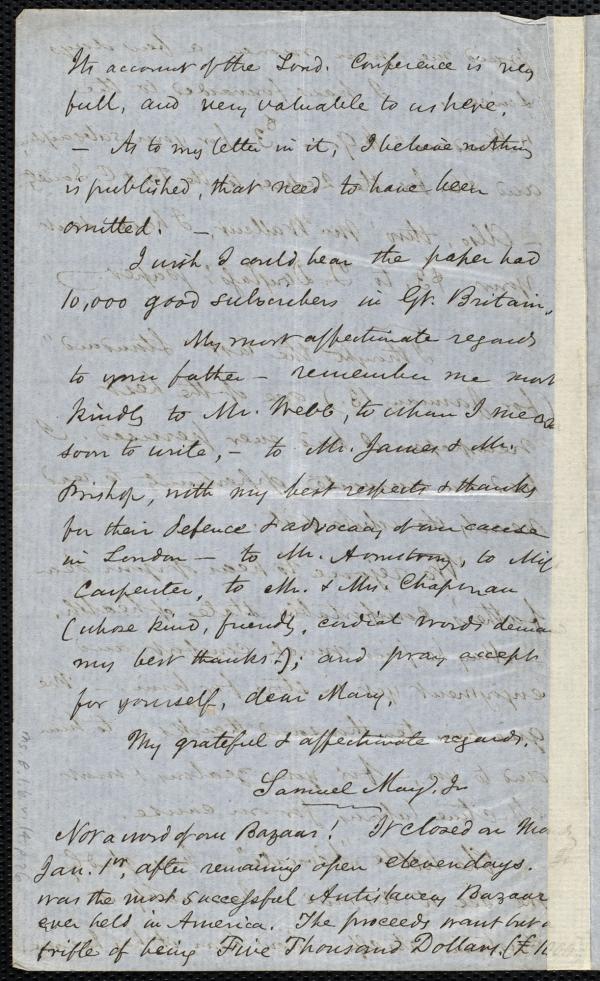 Its account of the Lond. Conference is very
full, and very valuable to us here.
– As to my letter in it, I believe nothing
is published, that need to have been
omitted. –
I wish I could hear the paper had
10,000 good subscribers in Gt. Britain.
My most affectionate regards
to your father – remember me most
kindly to Mr. Webb, to whom I mean
soon to write, – to Mr. James & Mr.
Bishop, with my best respects & thanks
for their defence & advocacy of our cause
in London – to Mr. Armstrong, to Miss
Carpenter, to Mr. & Mrs. Chapman
(whose kind, friendly, cordial words demand
my best thanks.); and pray accept
for yourself, dear Mary,
My grateful & affectionate regards.
Samuel May, Jr
Not a word of our Bazaar! It closed on
Jan. 1st, after remaining open eleven days.
was the most successful Antislavery Bazaar
ever held in America. The proceeds want but a
trifle of being Five Thousand Dollars. (£